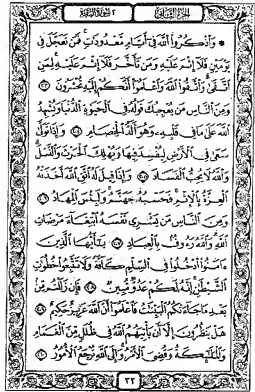 الجزء الثاني
سورة البقرة
وَاذْكُرُوا اللَّهَ فِي أَيَّامٍ مَعْدُودَاتٍ فَمَنْ تَعَجَّلَ فِي
يَوْمَيْنِ فَلَا إِثْمَ عَلَيْهِ وَمَنْ تَأَخَّرَ فَلَا إِثْمَ عَلَيْهِ لِمَنِ
اتَّقَىٰ وَاتَّقُوا اللَّهَ وَاعْلَمُوا أَنَّكُمْ إِلَيْهِ تُحْشَرُونَ ٢٠٣
وَمِنَ النَّاسِ مَنْ يُعْجِبُكَ قَوْلُهُ فِي الْحَيَاةِ الدُّنْيَا وَيُشْهِدُ
اللَّهَ عَلَىٰ مَا فِي قَلْبِهِ وَهُوَ أَلَدُّ الْخِصَامِ ٢٠٤ وَإِذَا تَوَلَّىٰ
سَعَىٰ فِي الْأَرْضِ لِيُفْسِدَ فِيهَا وَيُهْلِكَ الْحَرْثَ وَالنَّسْلَ
وَاللَّهُ لَا يُحِبُّ الْفَسَادَ ٢٠٥ وَإِذَا قِيلَ لَهُ اتَّقِ اللَّهَ أَخَذَتْهُ
الْعِزَّةُ بِالْإِثْمِ فَحَسْبُهُ جَهَنَّمُ وَلَبِئْسَ الْمِهَادُ ٢٠٦
وَمِنَ النَّاسِ مَنْ يَشْرِي نَفْسَهُ ابْتِغَاءَ مَرْضَاتِ
اللَّهِ وَاللَّهُ رَءُوفٌ بِالْعِبَادِ ٢٠٧ يَا أَيُّهَا الَّذِينَ
آمَنُوا ادْخُلُوا فِي السِّلْمِ كَافَّةً وَلَا تَتَّبِعُوا خُطُوَاتِ
الشَّيْطَانِ إِنَّهُ لَكُمْ عَدُوٌّ مُبِينٌ ٢٠٨ فَإِنْ زَلَلْتُمْ مِنْ
بَعْدِ مَا جَاءَتْكُمُ الْبَيِّنَاتُ فَاعْلَمُوا أَنَّ اللَّهَ عَزِيزٌ حَكِيمٌ ٢٠٩
هَلْ يَنْظُرُونَ إِلَّا أَنْ يَأْتِيَهُمُ اللَّهُ فِي ظُلَلٍ مِنَ الْغَمَامِ
وَالْمَلَائِكَةُ وَقُضِيَ الْأَمْرُ وَإِلَى اللَّهِ تُرْجَعُ الْأُمُورُ ٢١٠
٣٢